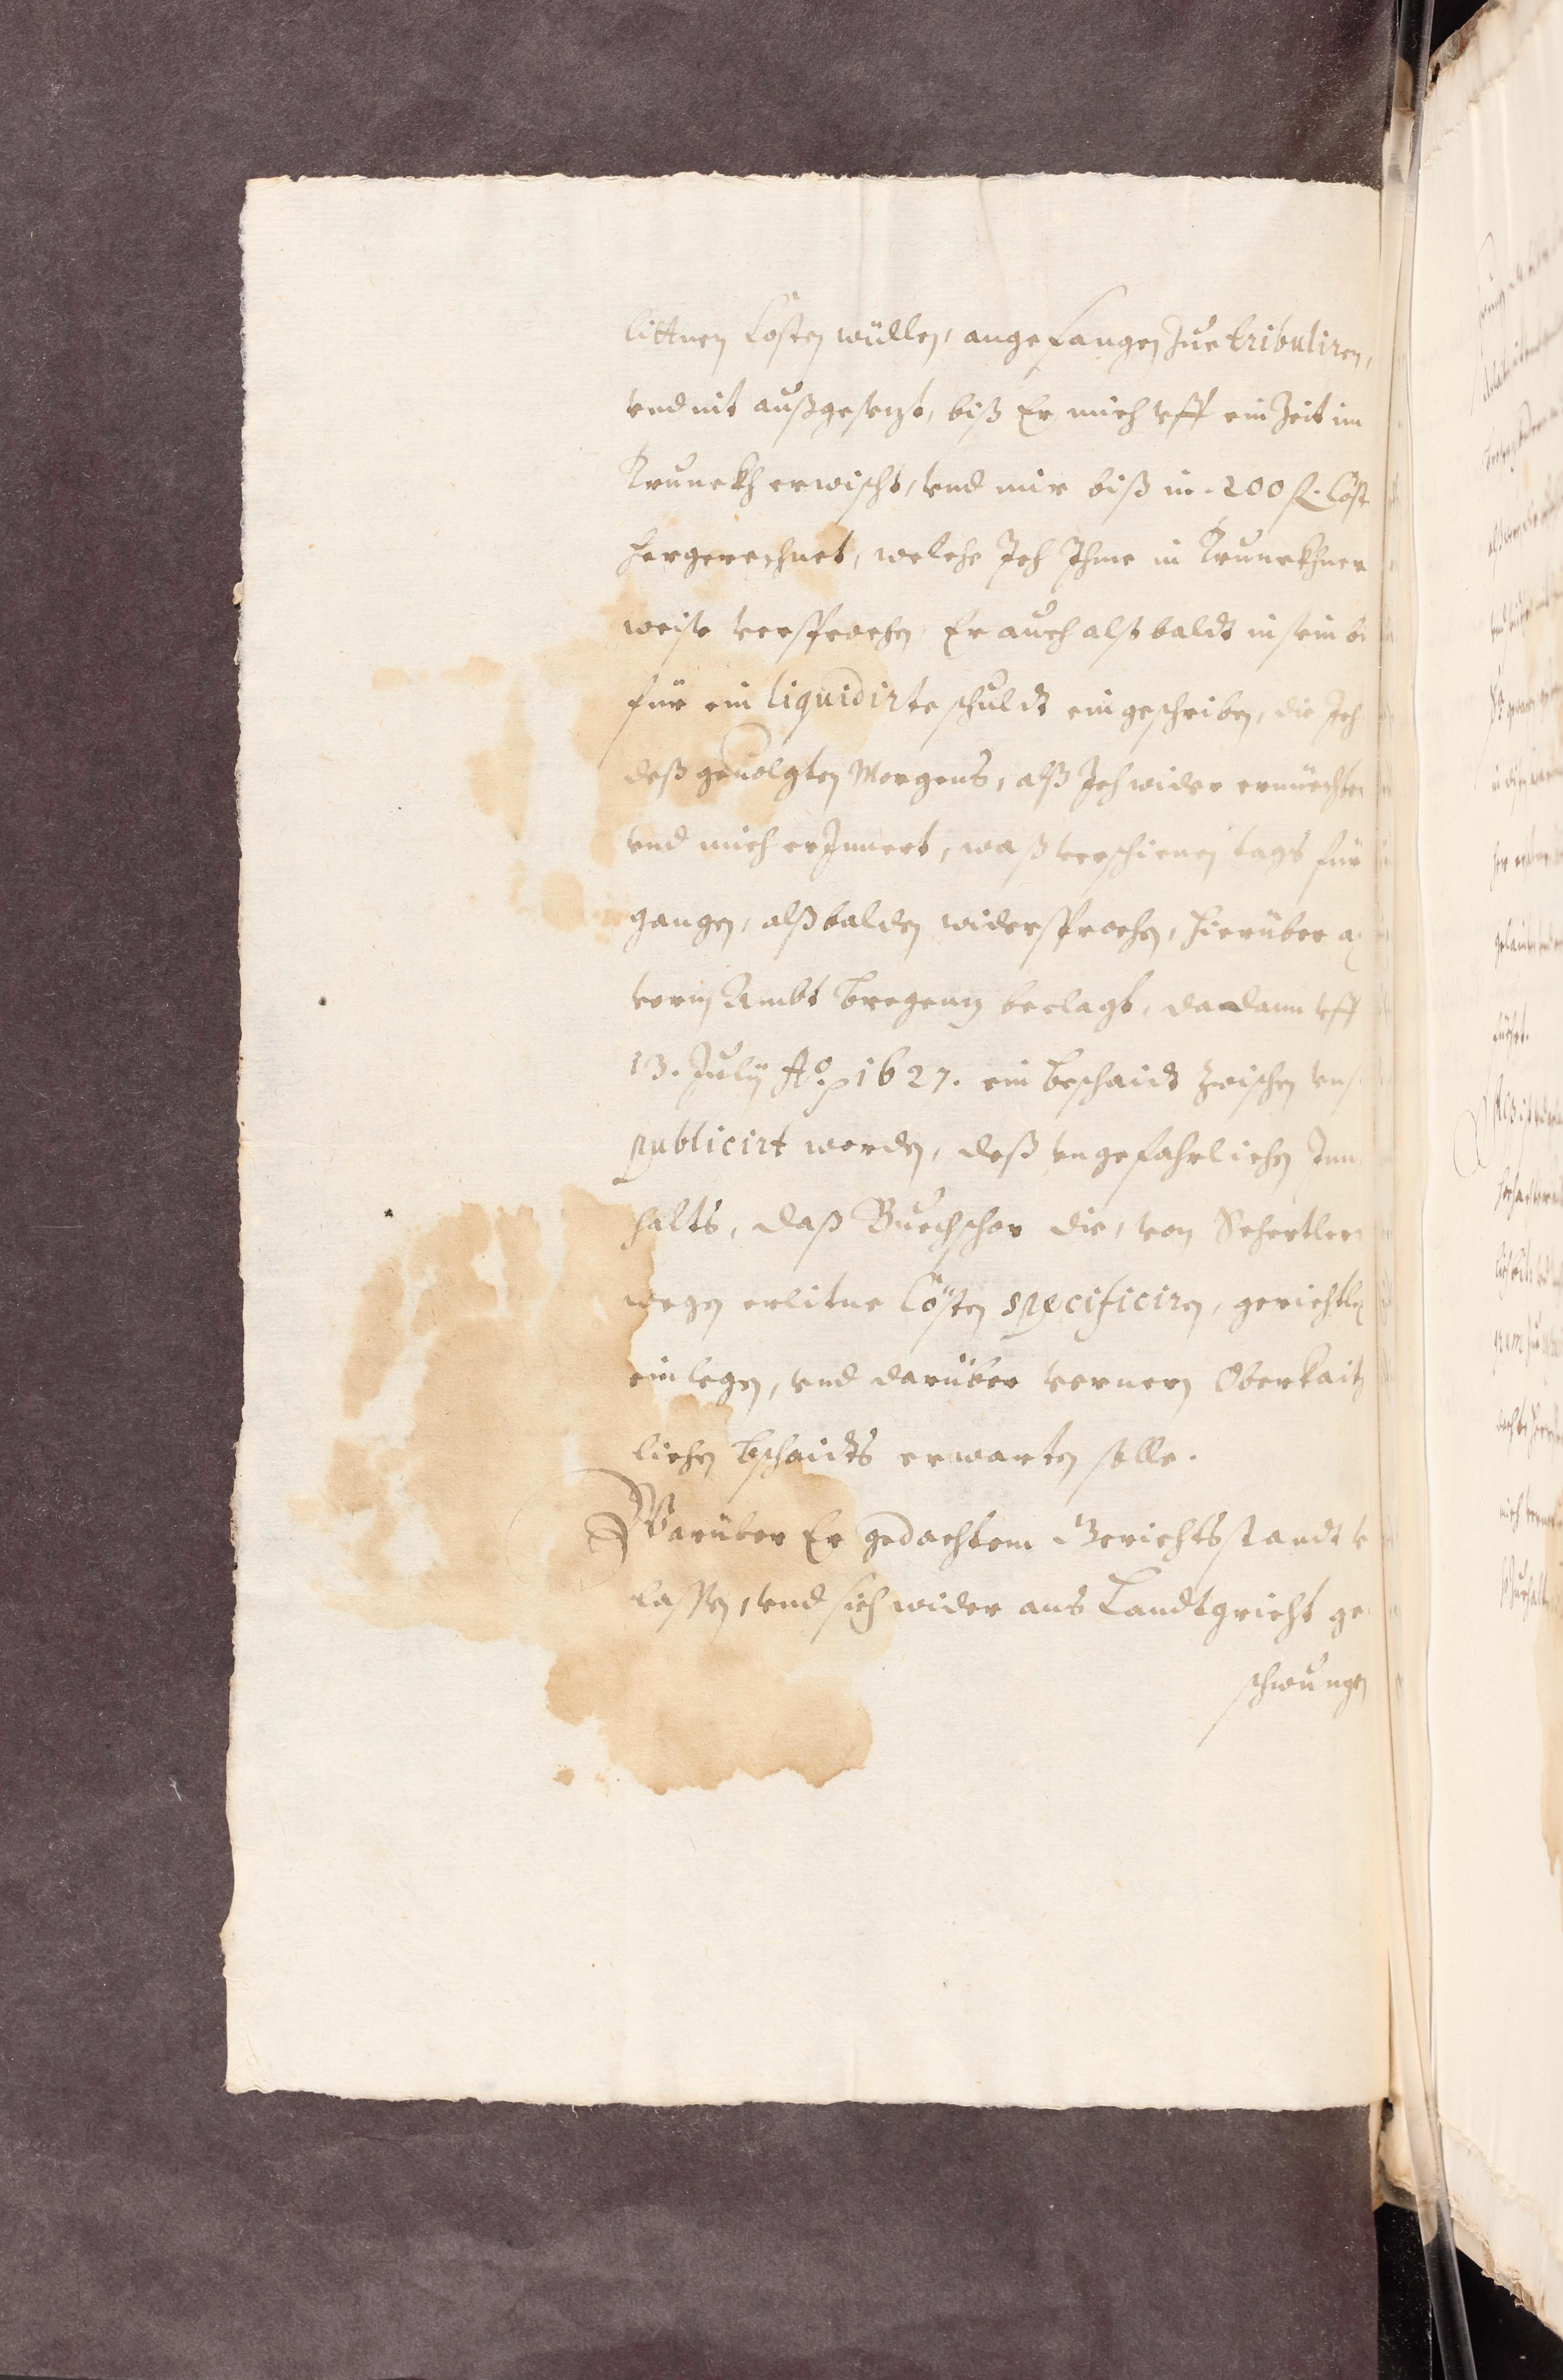 littnen Costen willen, angefangen zue tribuliren,
vnd nit außgesetzt, biß Er mich vff ein Zeit im
Trunckh erwischt, vnd mir biß in 200 fl. Cöst
hergerechnet, welche Ich Ihme in Trunckhner
weise versprochen, Er auch alßbaldt in sein
für ein liquidirte schuldt eingeschriben, die Ich
deß geuolgten Morgens, alß Ich wider ernüechter
vnd mich erInnert, waß verschienen tags für
gangen, alßbalden widersprochen, hierüber
vorm Ambt Bregentz beclagt, da dann vff
13. July Ao. 1627. ein Beschaidt zwischen vnß
publicirt worden, deß vngefahrlichen Inn
halts, daß Buechscher die, von Schertler
wegen erlitne Cösten specificiren, gerichtlich
einlegen, vnd darüber vernern Oberkait
lichen bschaidts erwarten solle.
Warüber Er gedachtem Gerichtsstandt
lassen, vnd sich wider ans Landtgricht ge
schwungen